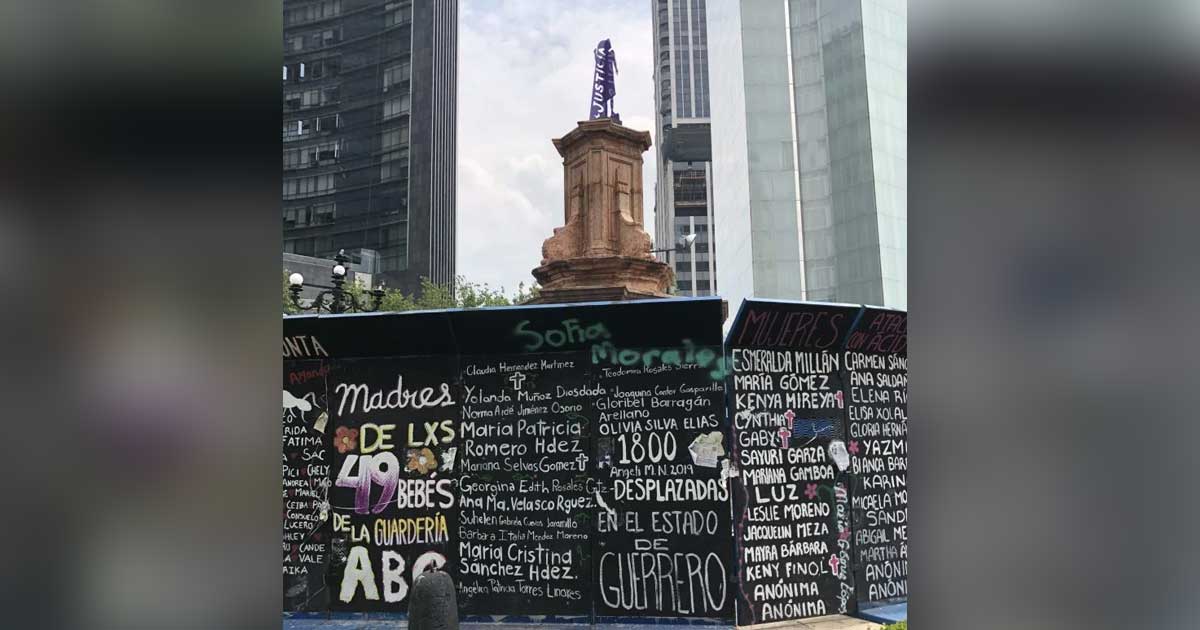 JUSTICIA
Sofia
Morales
UNTA
Amanda
FATIMA
SAC
PICI CHELY
LUCERO
CANDE
LA VALE
Madres
DE LXS
49
BEBÉS
DE LA GUARDERÍA
ABC
Claudia Hernandez Martinez
Yolanda Muñoz Diosdado
Norma Ardé Jiménez Osorio
María Patricia
Romero Hdez
Mariana Selvas Gomez
Georgina Edith Rosales Gtz
Ana Ma. Velasco Rguez.
Suhelen Gabriela Cuevas Jaramillo
Barbara Itahi Mendez Moreno
María Cristina
Sánchez Hdez.
Angelica Patricia Torres Linares
Teodomira Rosales Sierra
Gloribel Barragán
Arellano
OLIVIA SILVA ELIAS
1800
Angeli M.N. 2019
DESPLAZADAS
EN EL ESTADO
DE
GUERRERO
MUJERES
ESMERALDA MILLÁN
MARÍA GÓMEZ
KENYA MIREYA
CYNTHIA
GABY
SAYURI GARZA
MARIANA GAMBOA
LUZ
LESLIE MORENO
JACQUELIN MEZA
MAYRA BÁRBARA
KENY FINOL
ANÓNIMA
ANÓNIMA
ATAC
CON ÁCIDO
CARMEN SÁNC
ANA SALDAÑ
ELENA RÍ
ELISA XOLAL
GLORIA HERNÁ
YAZMI
BIANCA BAR
KARIN
MICAELA MO
SAND
ABIGAIL ME
MARTHA Á
ANÓNIM
ANÓNIM